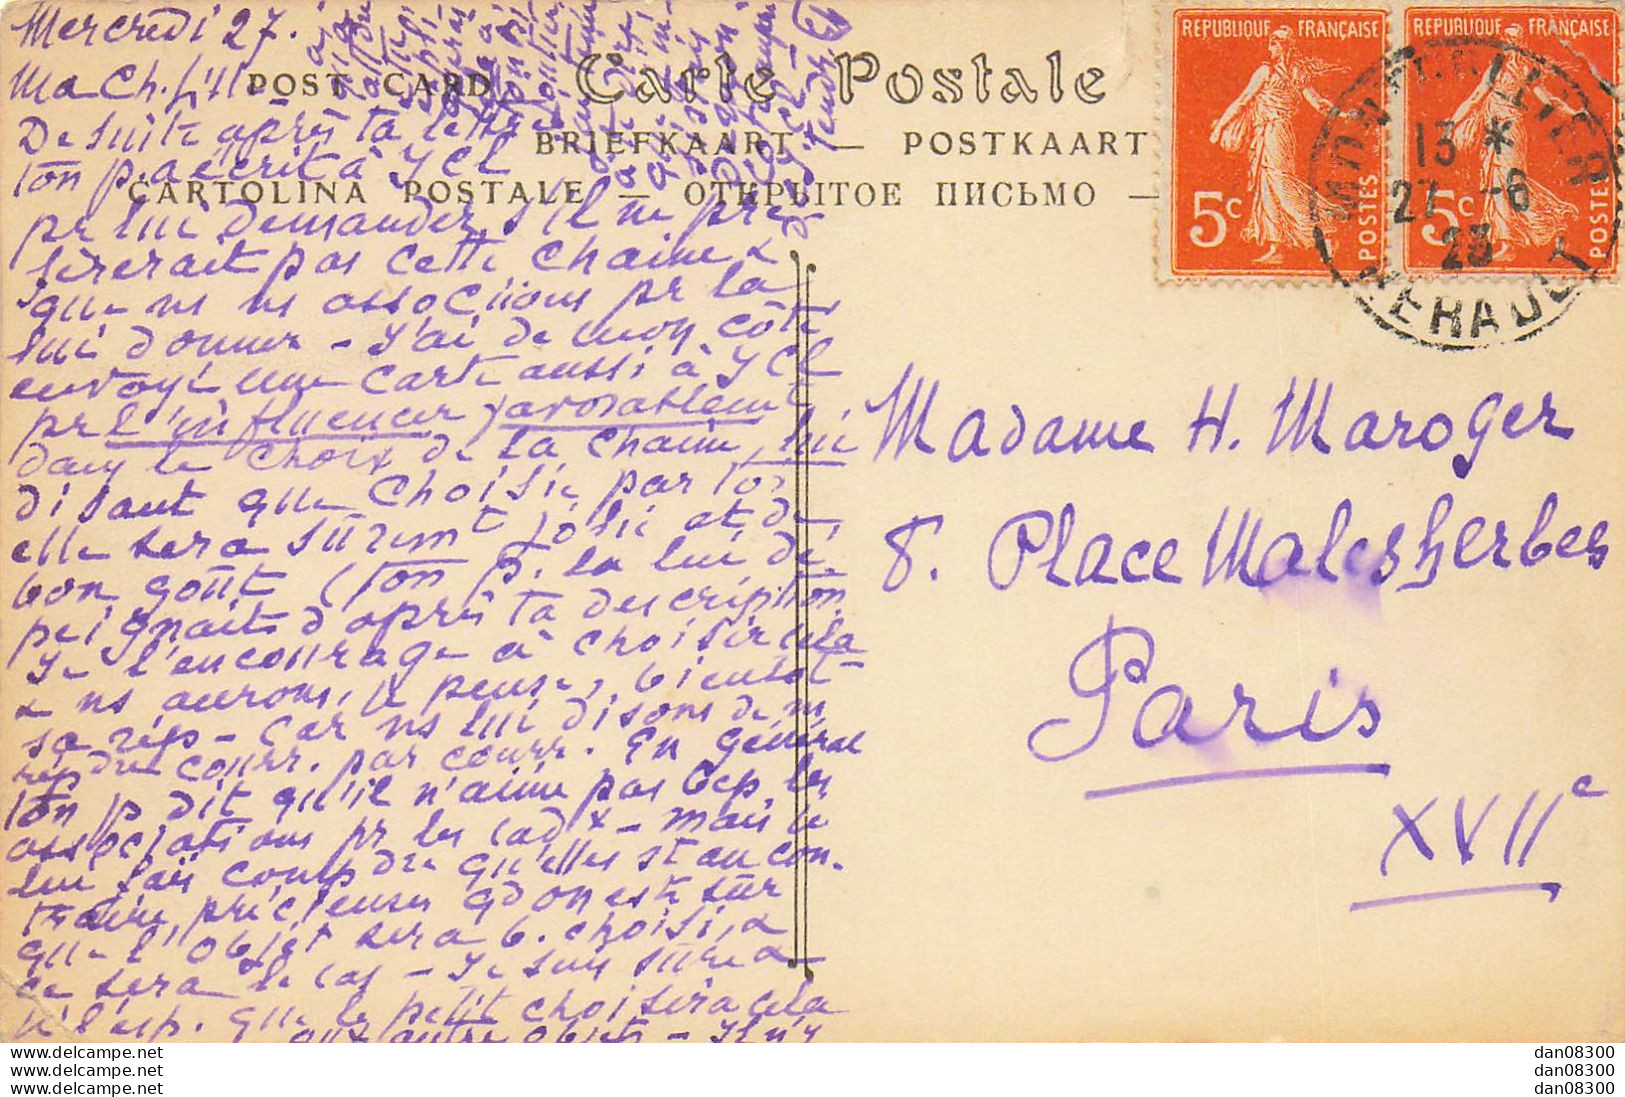 Mercredi 27.
Ma Ch. fille
POST CARD
Carte Postale
BRIEFKAART — POSTKAART
CARTOLINA POSTALE — ОТКРЫТОЕ ПИСЬМО —
De suite après ta lettre
ton p. a écrit à YCL
pr lui demander s'il ne pré
fèrerait pas cette chaine &
que ns ns associions pr la
lui donner — J'ai de mon côté
envoyé une carte aussi à YCL
pr l'influencer favorablement
dans le choix de la chaine, lui
disant que choisie par toi
elle sera sûremt jolie et de
bon goût (ton p. la lui dé
peignait d'après ta description.
Je t'encourage à choisir cela
& ns aurons, je pense, bientôt
sa rép — car ns lui disons de m
rép dre courr. par courr. En général
ton p dit qu'il n'aime pas bcp les
associations pr les cadx — mais je
lui fais compdre qu'elles st au con-
traire, précieuses qd on est sûr
que l'objet sera b. choisi, &
ce sera le cas — Je suis sûre &
j'esp. que le petit choisira cela
aux autre objets — Il n'y
REPUBLIQUE FRANÇAISE
5c
POSTES
REPUBLIQUE FRANÇAISE
5c
POSTES
MONTPELLIER
13 *
27 -6
23
HERAULT
Madame H. Maroger
8. Place Malesherbes
Paris
XVIIe
www.delcampe.net
www.delcampe.net
www.delcampe.net
dan08300
dan08300
dan08300